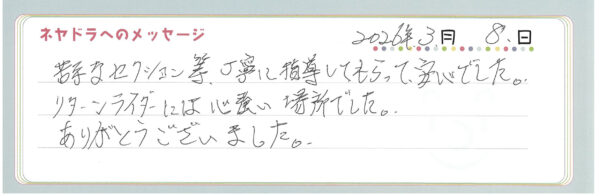 ネヤドラへのメッセージ 2026年.3月 8.日
苦手なセクション等、丁寧に指導してもらって、安心でした。
リターンライダーには心強い場所でした。
ありがとうございました。